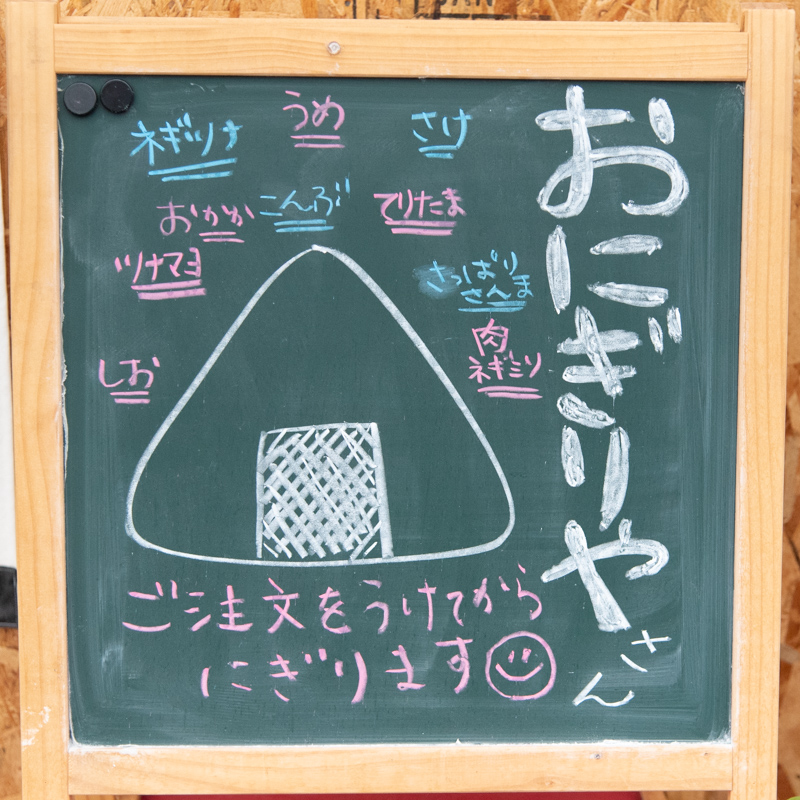 おにぎりや
さん
うめ
さけ
ネギツナ
おかか
こんぶ
てりたま
ツナマヨ
さっぱり
さんま
肉
ネギミソ
しお
ご注文をうけてから
にぎります